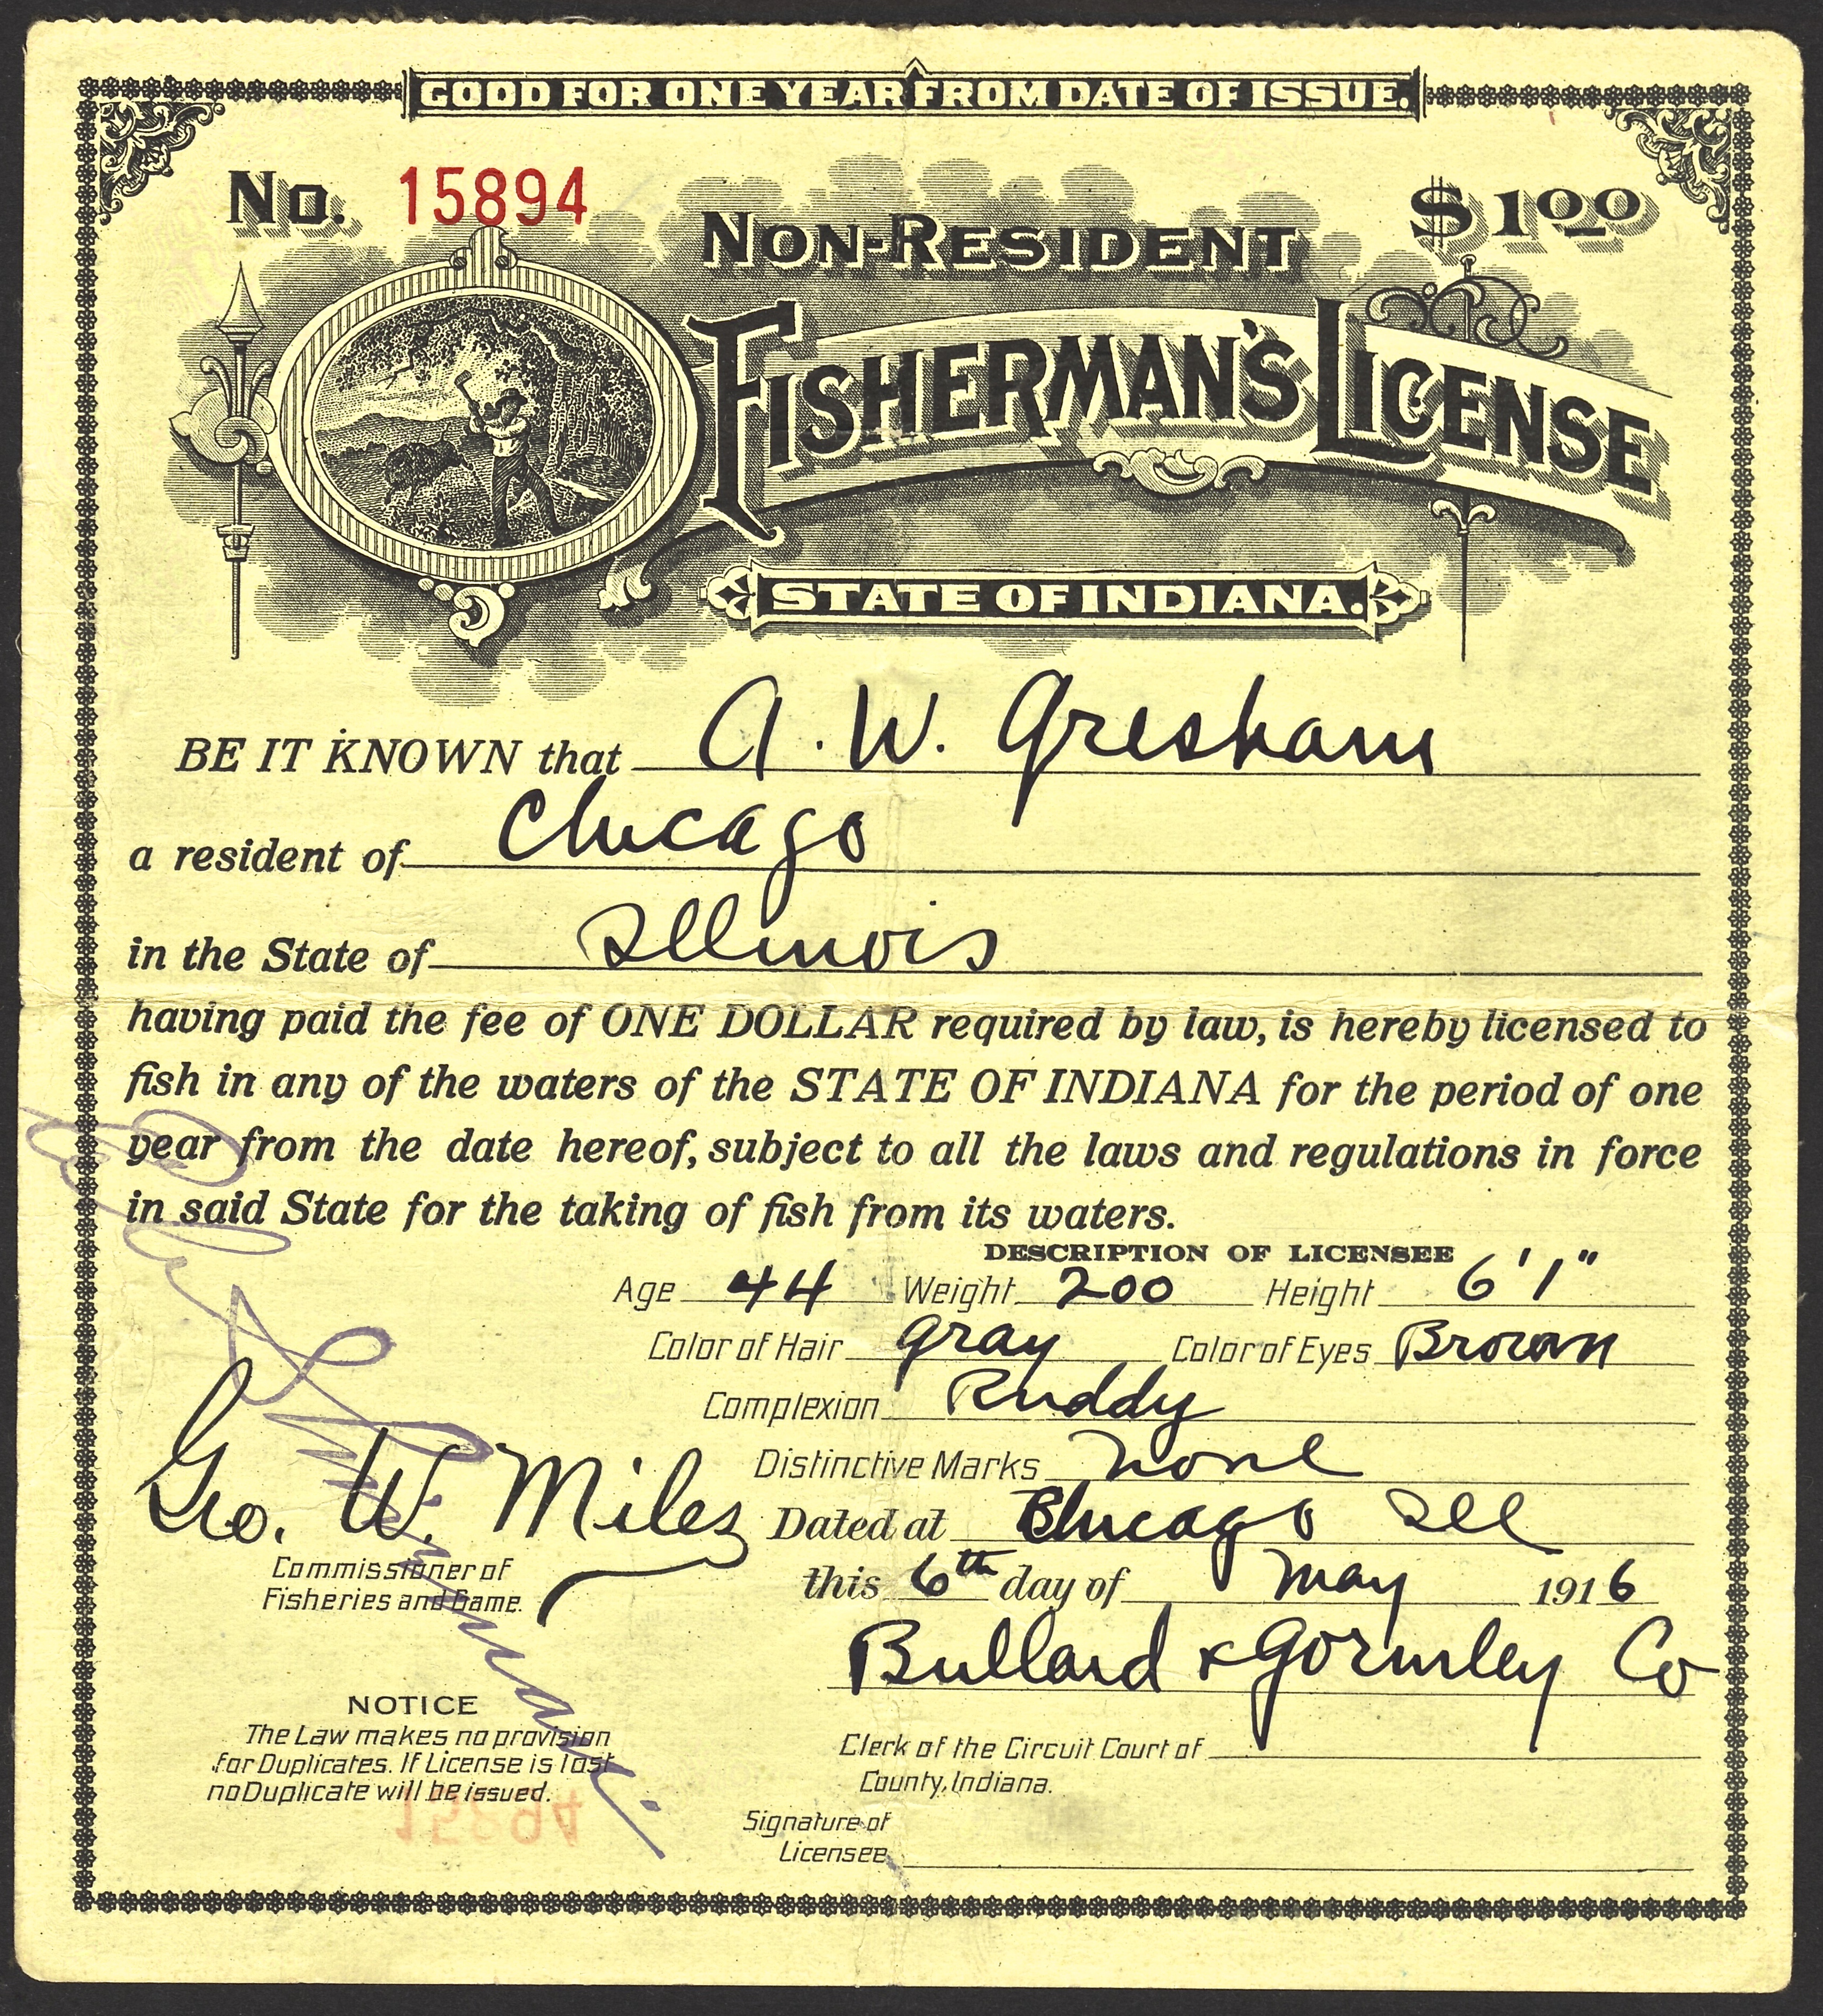 GOOD FOR ONE YEAR FROM DATE OF ISSUE.
No. 15894
$1.00
NON-RESIDENT
FISHERMAN'S LICENSE
STATE OF INDIANA.
BE IT KNOWN that A. W. Gresham
a resident of Chicago
in the State of Illinois
having paid the fee of ONE DOLLAR required by law, is hereby licensed to
fish in any of the waters of the STATE OF INDIANA for the period of one
year from the date hereof, subject to all the laws and regulations in force
in said State for the taking of fish from its waters.
DESCRIPTION OF LICENSEE
Age 44 Weight 200 Height 6'1"
Color of Hair Gray Color of Eyes Brown
Complexion Ruddy
Distinctive Marks None
Geo. W. Miles
Commissioner of
Fisheries and Game.
Dated at Chicago Ill
this 6th day of May 1916
Bullard & Gormley Co
NOTICE
The Law makes no provision
for Duplicates. If License is lost
no Duplicate will be issued.
Clerk of the Circuit Court of
County, Indiana.
Signature of
Licensee
15894